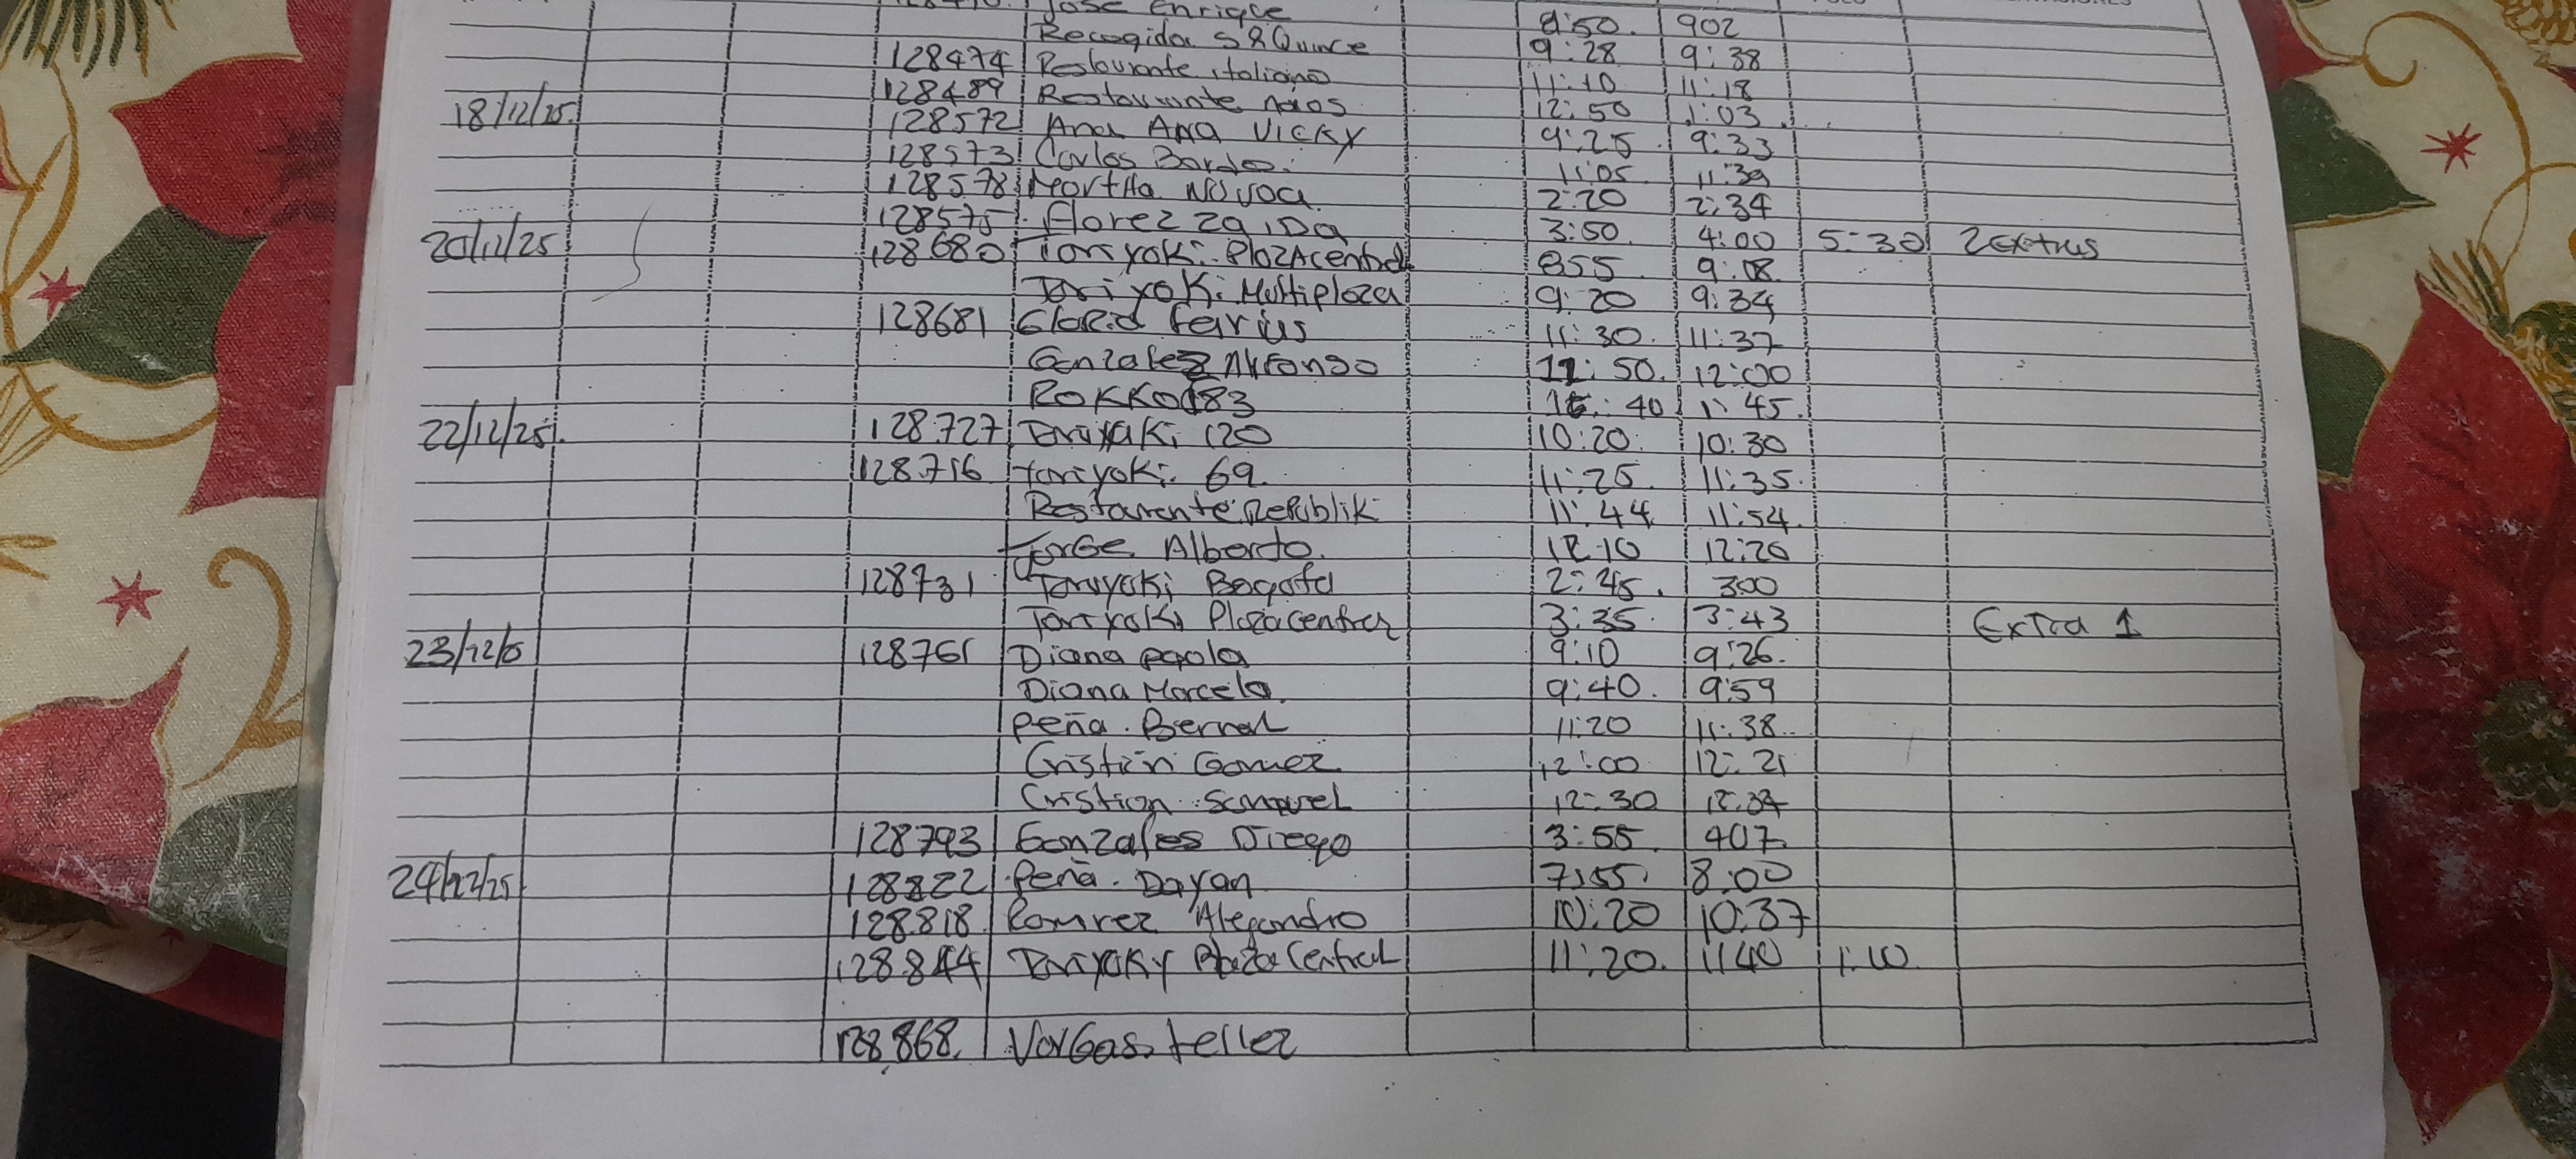 Jose Enrique 8:50. 902
Recogida S & Quince 9:28 9:38
128474 Restourante italiano 11:10 11:18
128489 Restaurante 12:50 1:03
18/12/25. 128572 Ana Ana VICKY 9:25 9:33
128573 Carlos 11:05 11:39
128578 Martha NOVOA 2:20 2:34
128575 Florez 3:50 4:00 5:30 2 extras
20/12/25 128680 Toriyoki Plaza central 855 9:08
Toriyoki Multiplaza 9:20 9:34
128681 11:30. 11:37
Gonzalez Alfonso 11:50. 12:00
ROKKO 183 40 1:45.
22/12/25. 128727 Toriyaki 120 10:20 10:30
128716 toriyoki 69. 11:25. 11:35.
Restaurante Republik 11:44 11:54.
Jorge Alberto. 12:10 12:20
128731 Toriyoki Bogota 2:45. 300
Toriyoki Plaza central 3:35 3:43 Extra 1
23/12/5 128761 Diana paola 9:10 9:26.
Diana Marcela. 9:40. 9:59
Peña. Bernal 11:20 11:38.
Cristian Gomez 12:00 12:21
Cristian Samquel 12:30
128793 Gonzales Diego 3:55 407
24/12/25 128822 Peña. Dayan 7:55 8:00
128.818. Ramirez Alejandro 10:20 10:37
128844 Toriyaky Plaza Central 11:20. 1140 1:10
128868. Vargas. tellez